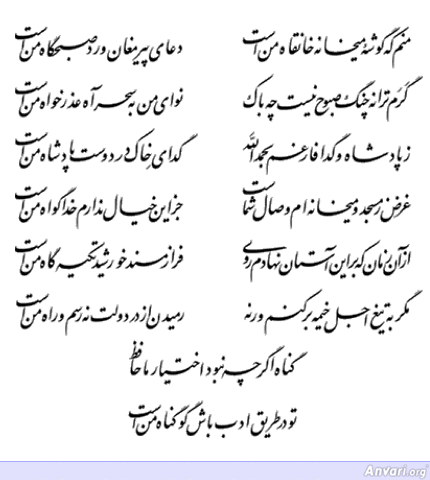 منم که گوشهٔ میخانه خانقاه من است دعای پیر مغان ورد صبحگاه من است
گرم ترانه چنگ صبوح نیست چه باک نوای من به سحر آه عذر خواه من است
ز پادشاه و گدا فارغم بحمدالله گدای خاک در دوست پادشاه من است
غرض ز مسجد و میخانه ام وصال شماست جز این خیال ندارم خدا گواه من است
از آن زمان که بر این آستان نهادم روی فراز مسند خورشید تکیه گاه من است
مگر به تیغ اجل خیمه بر کنم ور نه رمیدن از در دولت نه رسم و راه من است
گناه اگر چه نبود اختیار ما حافظ
تو در طریق ادب باش گو گناه من است
Anvari.org